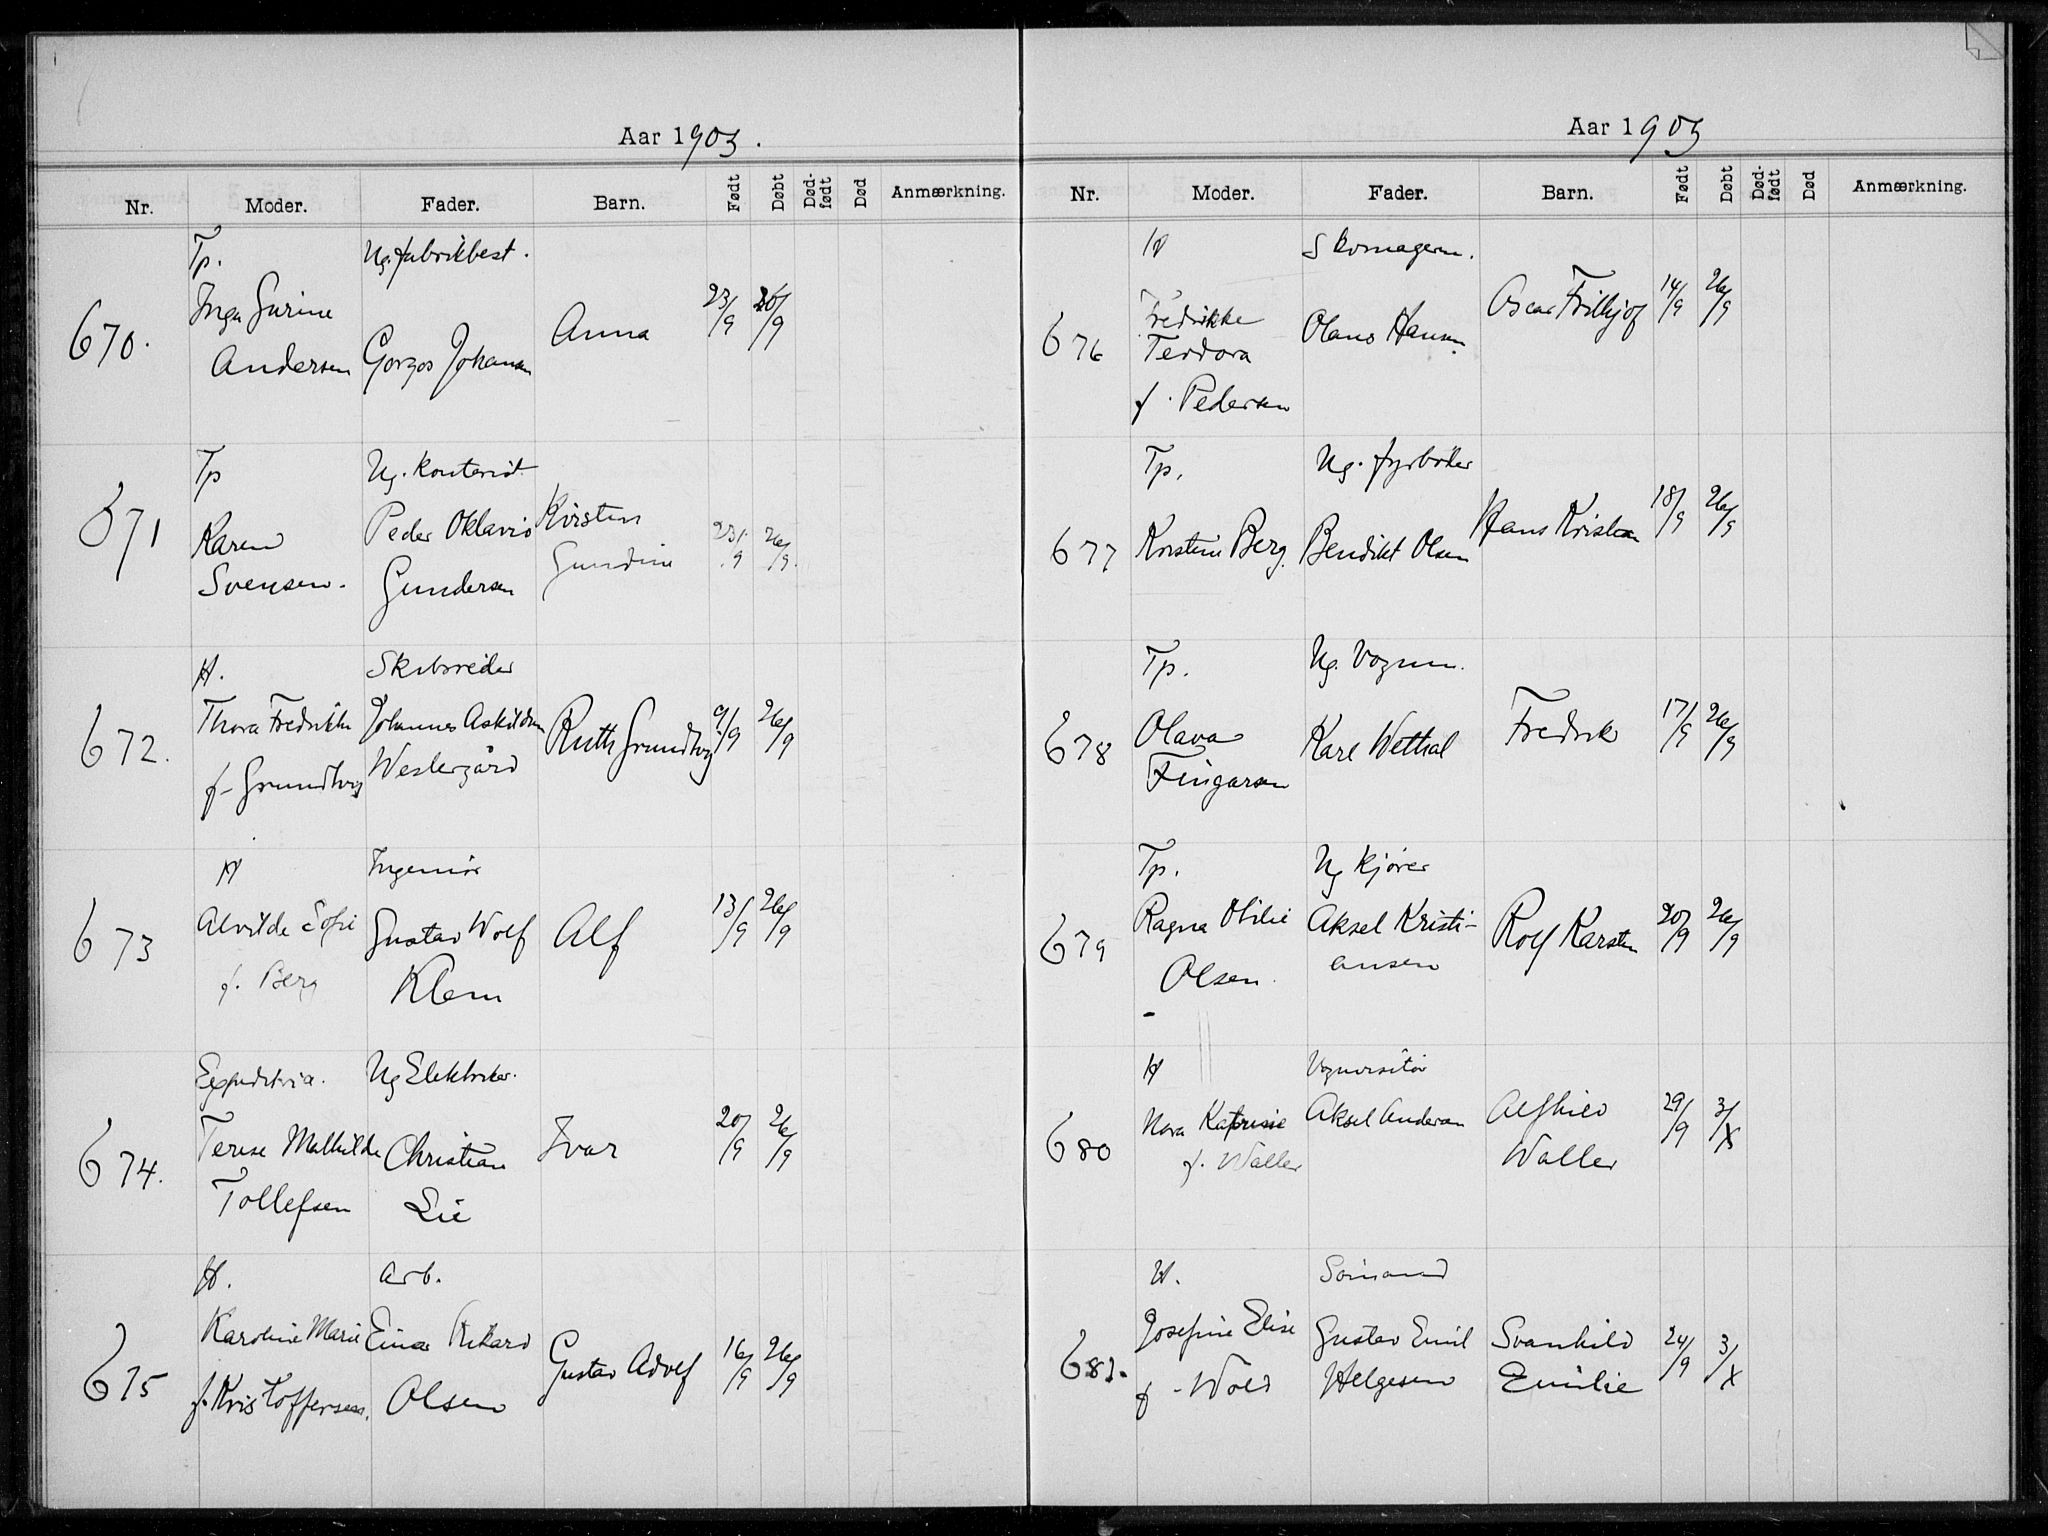 Aar 1903.
Nr. Moder. Fader. Barn. Født Døbt Død-født Død Anmærkning.
Tp. Ug. fabrikbest.
670. Inga Gurine Anna 23/9 26/9
Andersen Johansen
Tp Ug. Kontorist
671 Karen Peder Oktavio Kirsten 23/9 26/9
Svensen. Gundersen Gundine
H. Skibsreder
672. Thora Fredrikke Johannes Askildsen Ruth Grundtvig 9/9 26/9
f. Grundtvig Westergård
H Ingeniør
673 Alvilde Sofie Gustav Wolf Alf 13/9 26/9
f. Berg Klem
Expeditrice. Ug Elektriker.
674. Terese Mathilde Christian Ivar 20/9 26/9
Tollefsen Lie
H. Arb.
675 Karoline Marie Einar Rikard Gustav Adolf 16/9 26/9
f. Kristoffersen. Olsen
Aar 1903
Nr. Moder. Fader. Barn. Født Døbt Død-født Død Anmærkning.
H Skomagerm.
676 Fredrikke Olaus Hansen Oscar Fritjof 14/9 26/9
Teodora
f. Pedersen
Tp. Ug. fyrbøter
677 Kirstine Berg. Bendikt Olsen Hans Kristian 18/9 26/9
Tp. Ug. Vognm.
678 Olava Karl Wethal Fredrik 17/9 26/9
Fingarsen
Tp. Ug Kjører
679 Ragna Otilie Aksel Kristi- Rolf Karsten 20/9 26/9
Olsen. ansen
H Vognvisitør
680 Nora Katrine Aksel Andersen Alfhild 29/9 3/X
f. Waller Waller
H. Sømand
681. Josefine Elise Gustav Emil Svanhild 24/9 3/X
f. Wold Helgesen Emilie